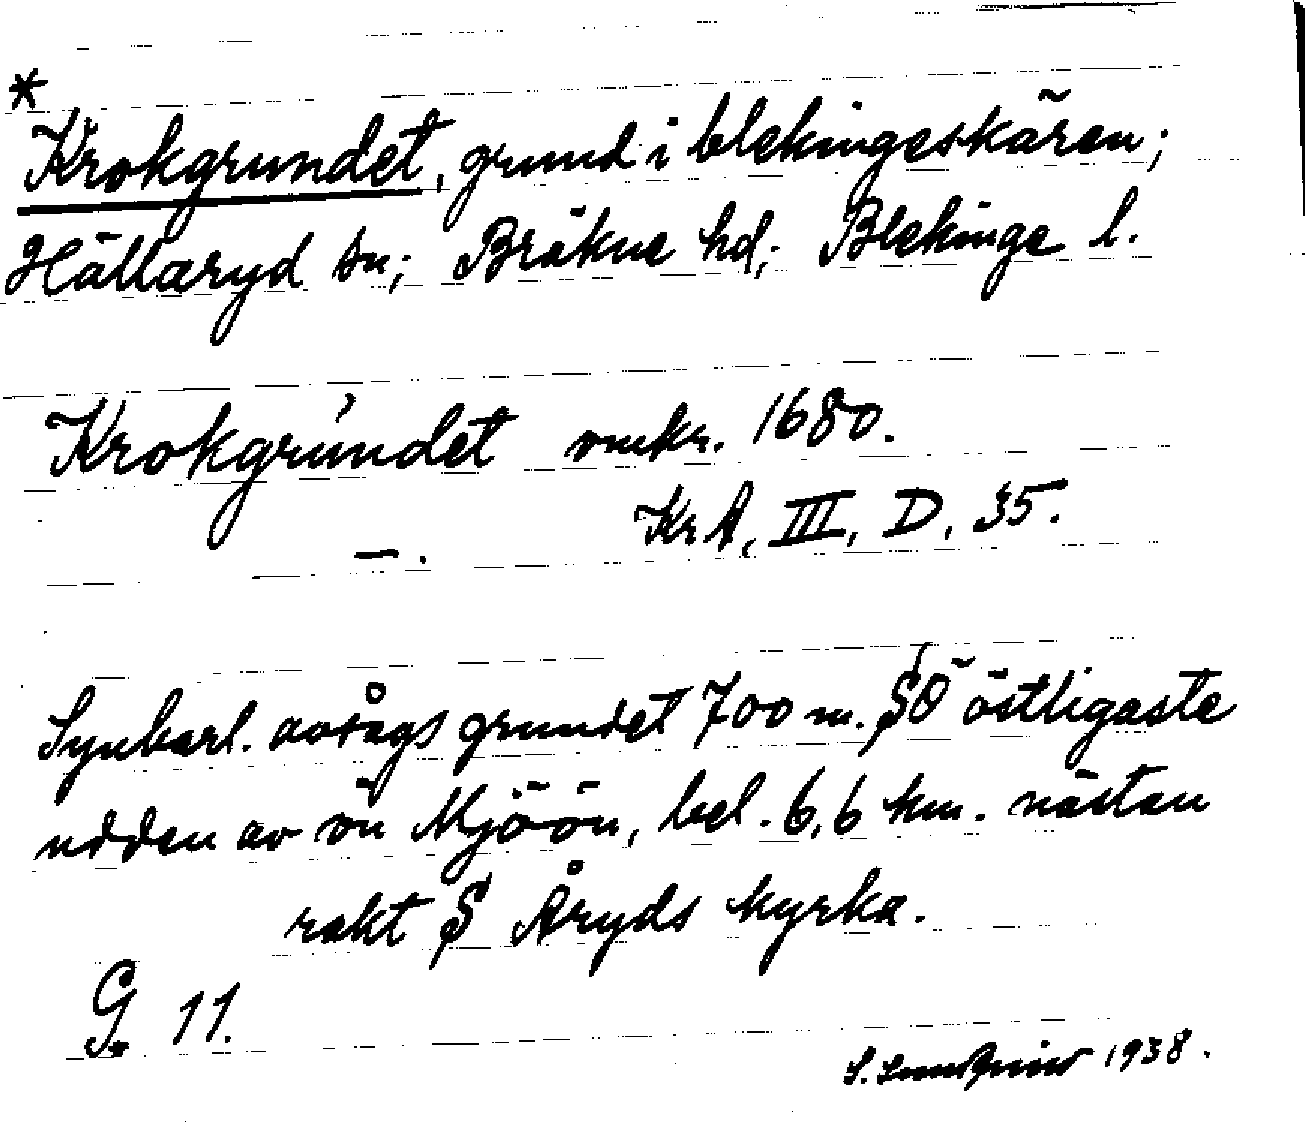 *
Krokgrundet, grund i blekingeskären;
Hällaryd sn; Bräkne hd; Blekinge l.
Krokgrundet omkr. 1680.
—. KrA, III, D, 35.
Synbarl. avsågs grundet 700 m. SÖ östligaste
udden av ön Mjöön, bel. 6,6 km. nästan
rakt S Åryds kyrka.
G. 11.
S. 1938.